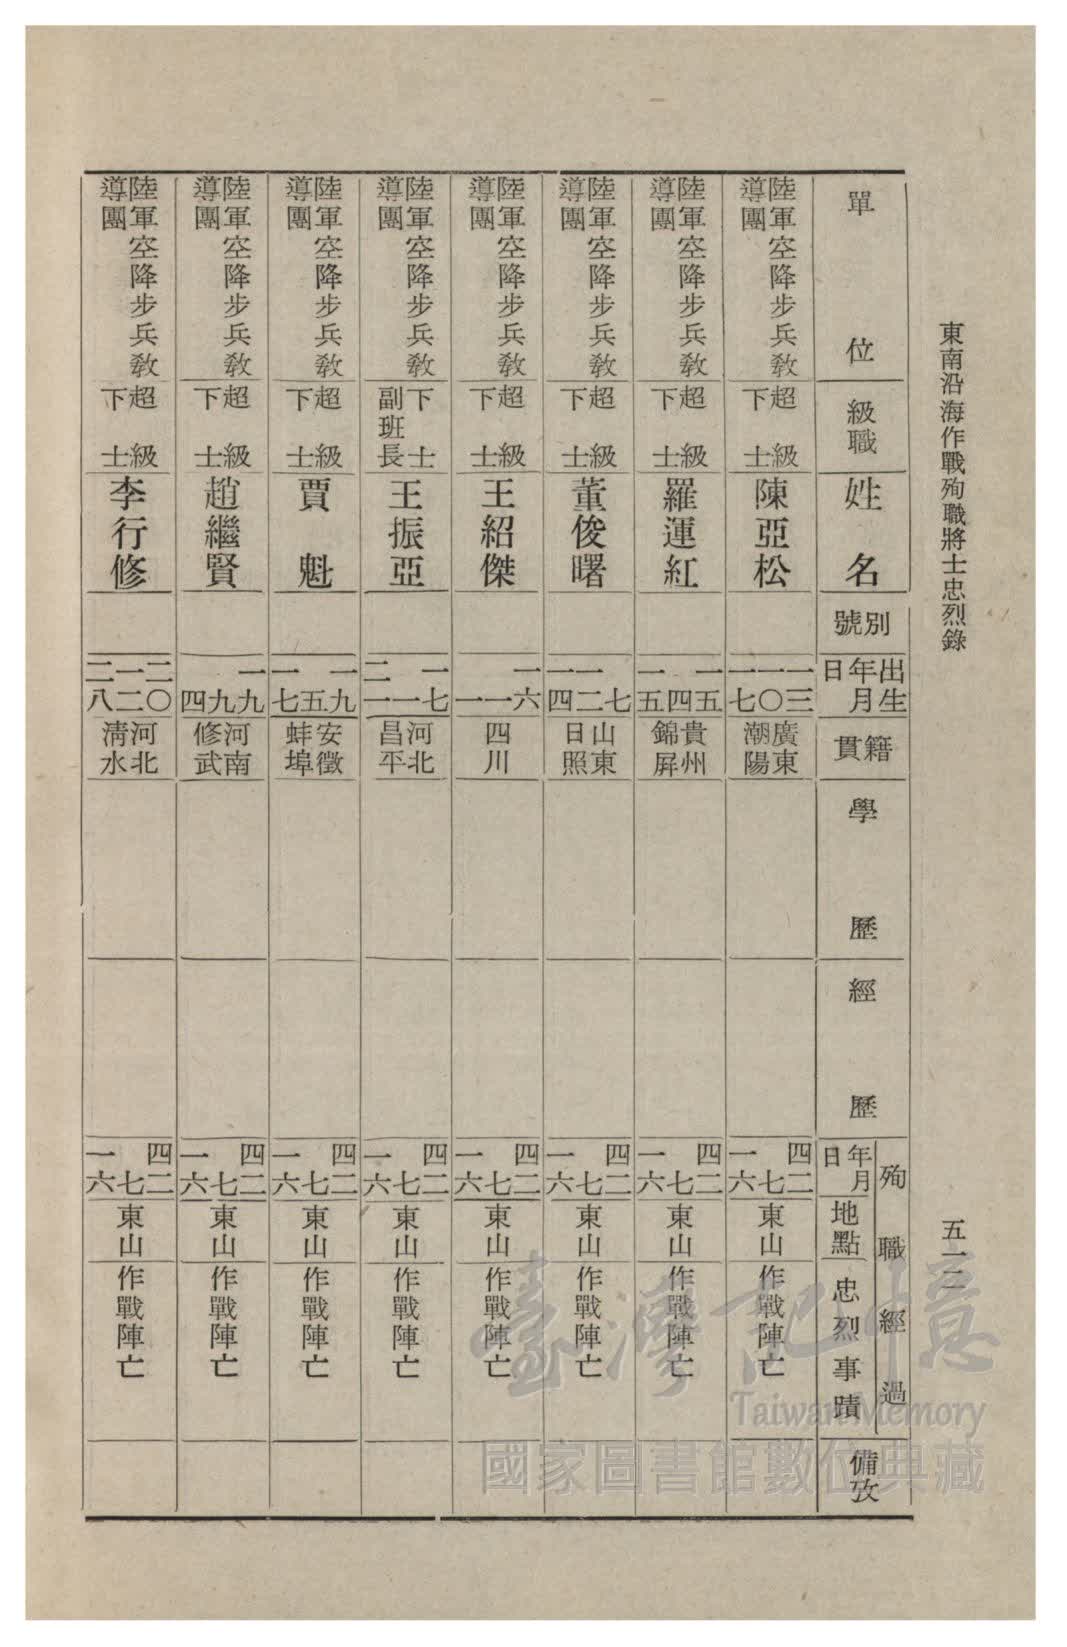 東南沿海作戰殉職將士忠烈錄
五一二
單位
級職
姓名
別號
出生年月日
籍貫
學歷
經歷
殉職經過
年月日
地點
忠烈事蹟
備攷
陸軍空降步兵教導團
超級下士
陳亞松
一三
一〇
一七
廣東潮陽
四二
七
一六
東山
作戰陣亡
陸軍空降步兵教導團
超級下士
羅運紅
一五
四
一五
貴州錦屏
四二
七
一六
東山
作戰陣亡
陸軍空降步兵教導團
超級下士
董俊曙
七
一二
一四
山東日照
四二
七
一六
東山
作戰陣亡
陸軍空降步兵教導團
超級下士
王紹傑
一六
一
一
四川
四二
七
一六
東山
作戰陣亡
陸軍空降步兵教導團
下士副班長
王振亞
一七
一
二一
河北昌平
四二
七
一六
東山
作戰陣亡
陸軍空降步兵教導團
超級下士
賈魁
一九
五
一七
安徵蚌埠
四二
七
一六
東山
作戰陣亡
陸軍空降步兵教導團
超級下士
趙繼賢
一九
九
四
河南修武
四二
七
一六
東山
作戰陣亡
陸軍空降步兵教導團
超級下士
李行修
二〇
一二
二八
河北清水
四二
七
一六
東山
作戰陣亡
臺灣記憶
Taiwan Memory
國家圖書館數位典藏